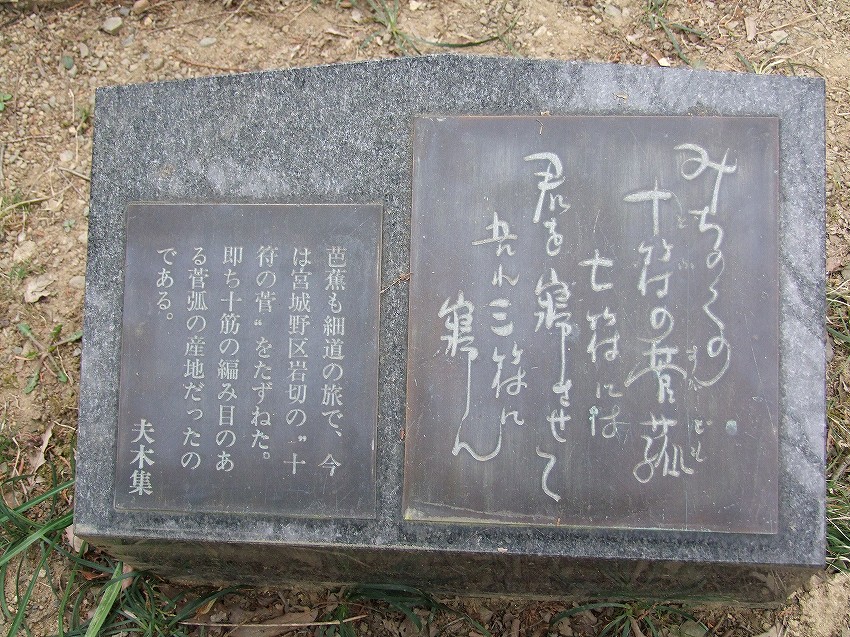 みちのくの
十符の菅菰
とふ
すがごも
七符には
君を寝させて
吾れ三符に
寝ん
芭蕉も細道の旅で、今
は宮城野区岩切の〝十
符の菅〟をたずねた。
即ち十筋の編み目のあ
る菅弧の産地だったの
である。
夫木集